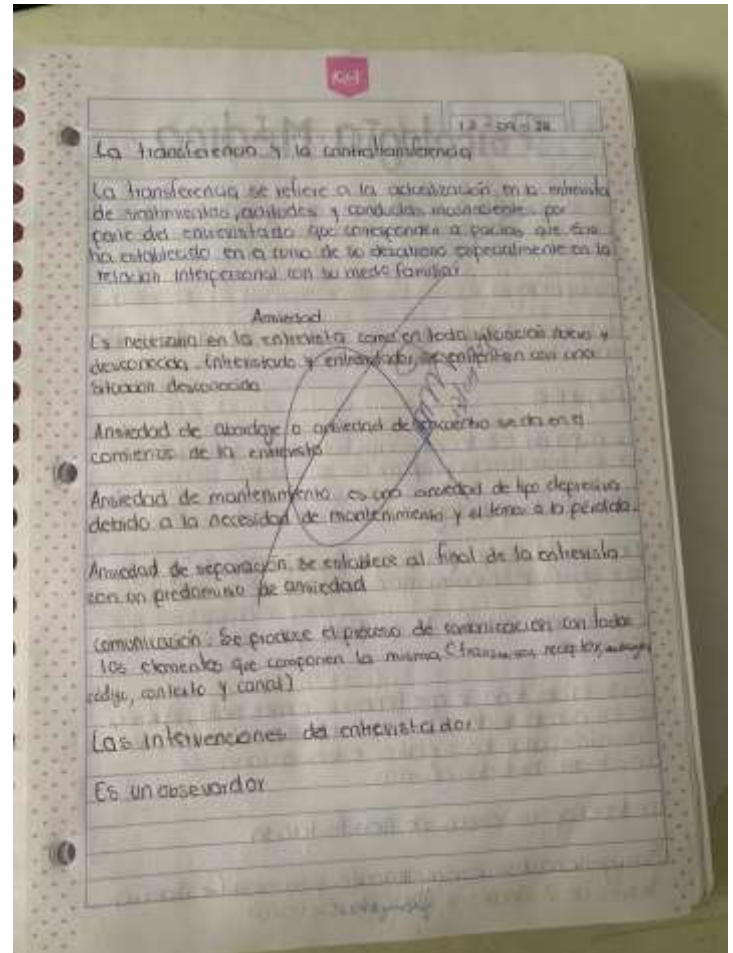 La transferencia y la contratransferencia
La transferencia se refiere a la actualización en la entrevista
de sentimientos, actitudes y conductas inconsciente, por
parte del entrevistado que corresponden a pautas que éste
ha establecido en el curso de su desarrollo especialmente en la
relación interpersonal con su medio familiar
Ansiedad
Es necesaria en la entrevista como en toda situación nueva y
desconocida. Entrevistado y entrevistador se enfrentan con una
situación desconocida
Ansiedad de abordaje o ansiedad de encuentro se da en el
comienzo de la entrevista
Ansiedad de mantenimiento es una ansiedad de tipo depresivo
debido a la necesidad de mantenimiento y el temor a la pérdida.
Ansiedad de separación se establece al final de la entrevista
con un predominio de ansiedad
comunicación: Se produce el proceso de comunicación con todos
los elementos que componen la misma (receptor,
código, contexto y canal)
Las intervenciones del entrevistador
Es un obsevardor